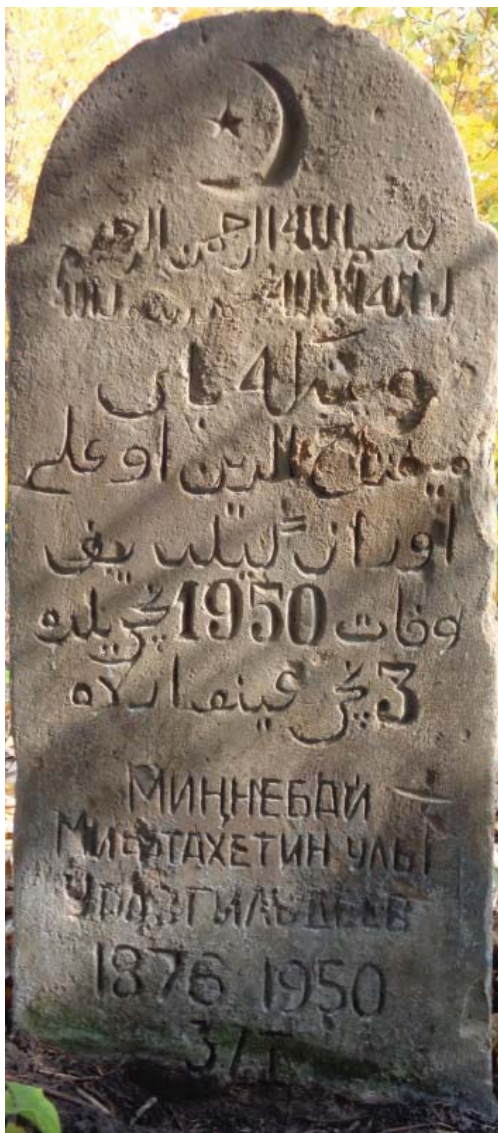 بسم الله الرحمن الرحيم
لا اله الا الله محمد رسول الله
باى
ميفتاح الدين اوغلى
اوراز گيلديف
وفات 1950 نچى يلده
3 نچى غينوارده
МИҢНЕБАЙ
МИФТАХЕТИН УЛЫ
УРАЗГИЛЬДЕЕВ
1876 1950
3/I